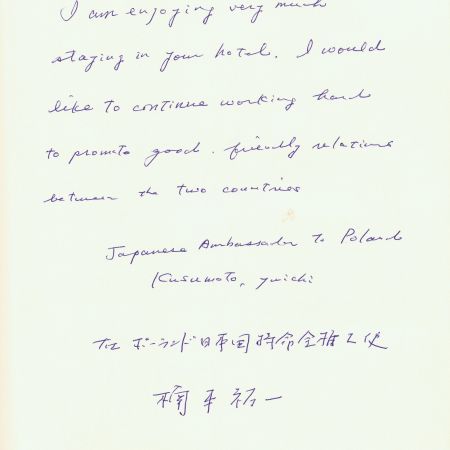 I am enjoying very much
staying in your hotel. I would
like to continue working hard
to promote good. friendly relations
between the two countries
Japanese Ambassador to Poland
Kusumoto, yuichi
在ポーランド日本国特命全権大使
楠本祐一